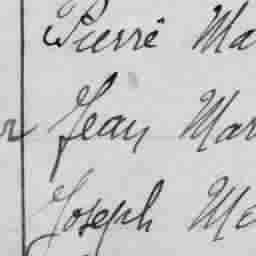 Pierre Ma
r Jean Mar
Joseph Me